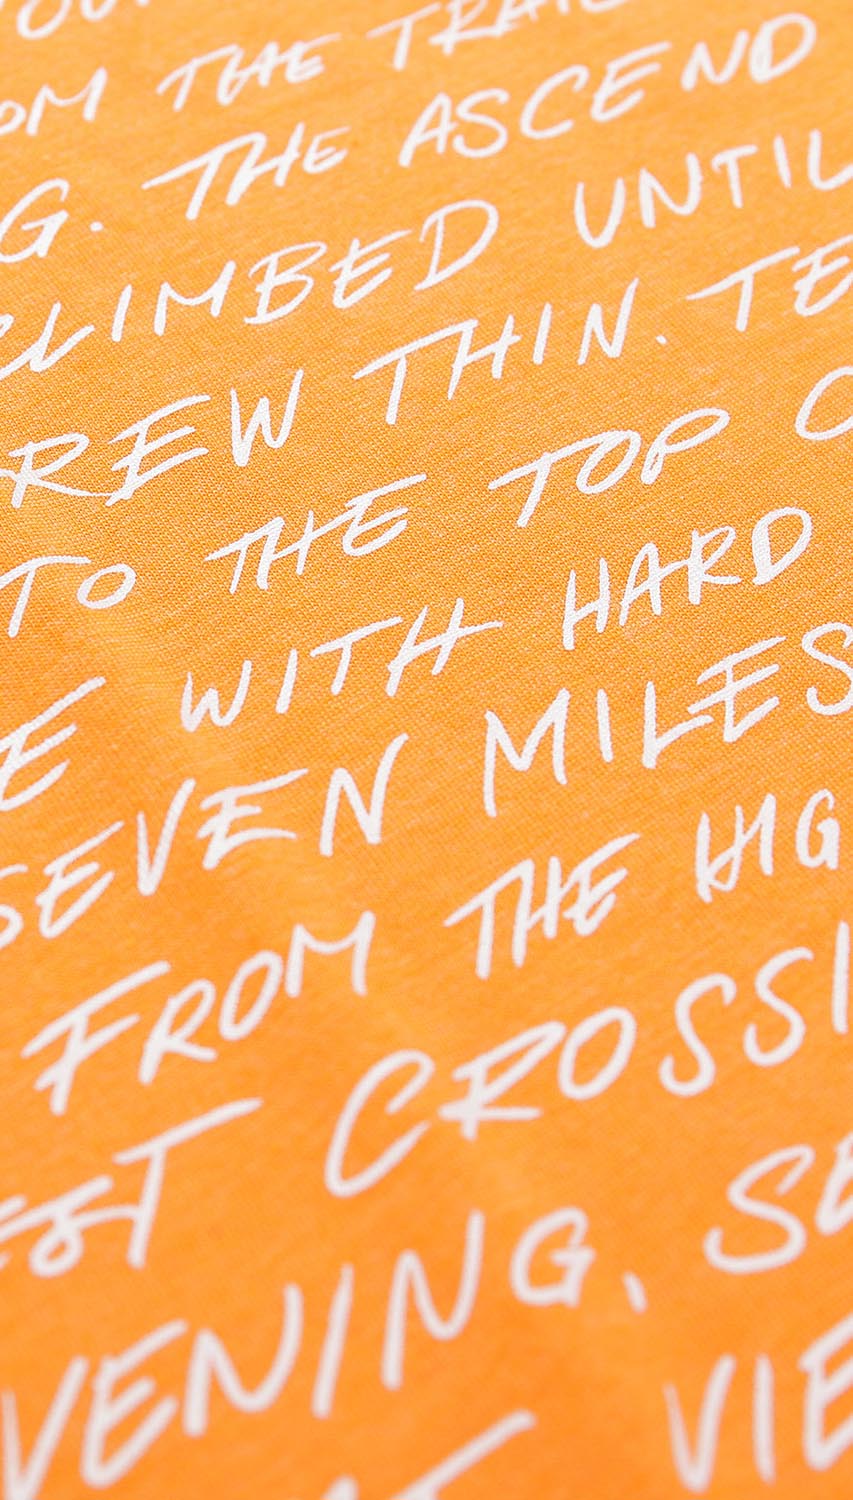 OM THE TRAIL
G. THE ASCEND
CLIMBED UNTIL
REW THIN. TE
TO THE TOP O
E WITH HARD
SEVEN MILES
FROM THE HIG
EST CROSSI
VENING, SE
VIE